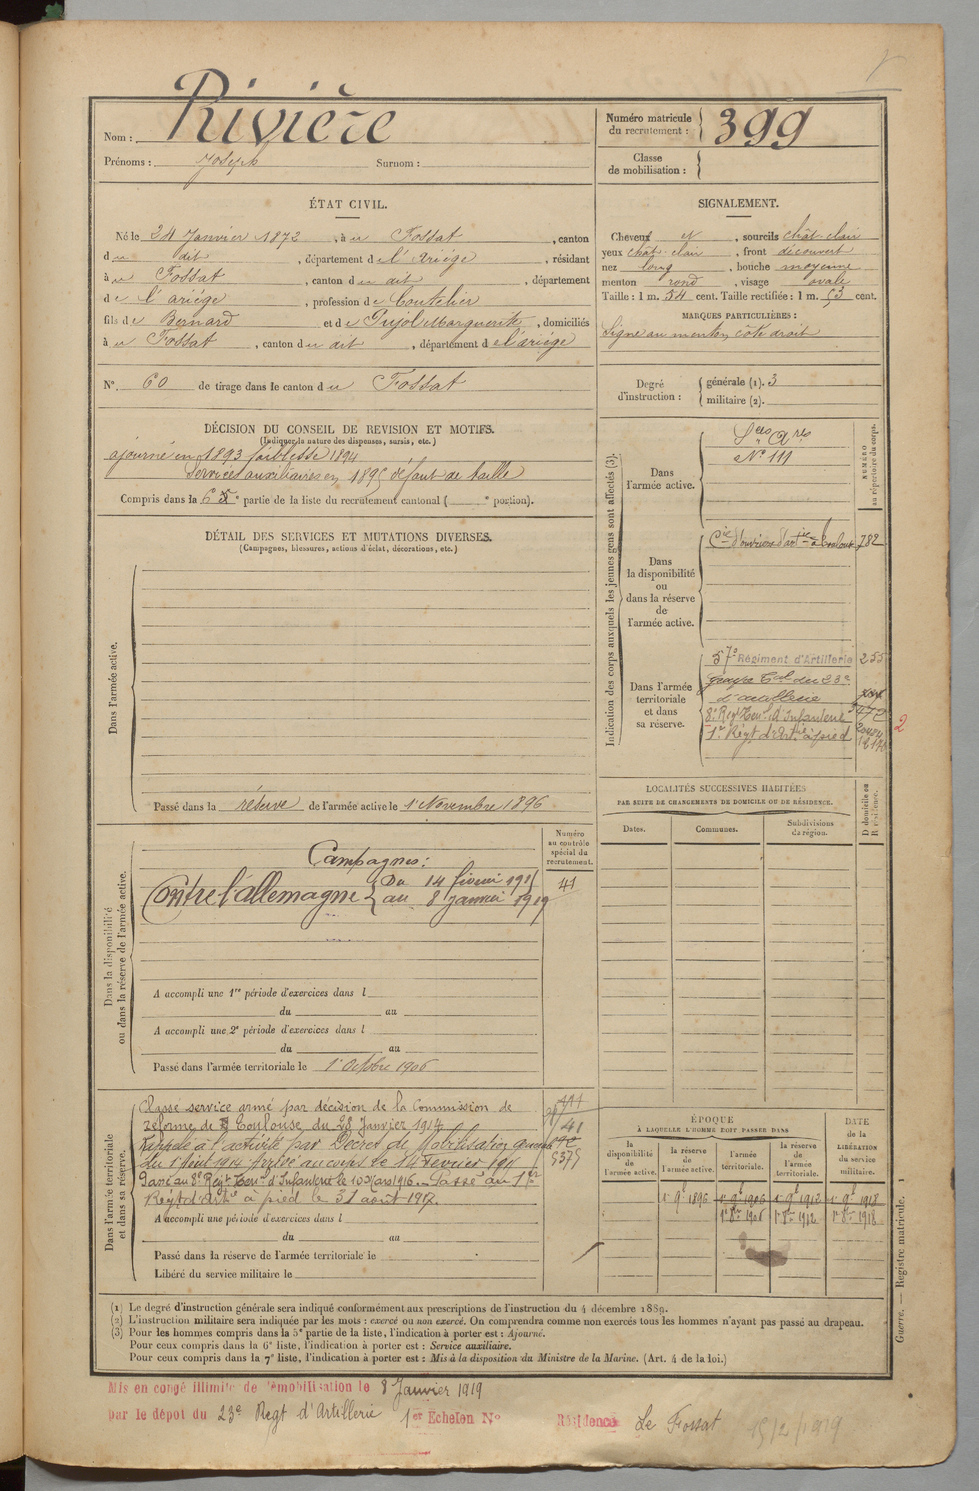 Nom : Rivière
Prénoms : Joseph Surnom :
Numéro matricule du recrutement : 399
Classe de mobilisation :
ÉTAT CIVIL.
Né le 24 Janvier 1872, à u Fossat, canton
du dit, département de l'Ariège, résidant
à u Fossat, canton du dit, département
de l'ariège, profession de Coutelier
fils de Bernard et de Pujol Marguerite, domiciliés
à u Fossat, canton du dit, département de l'ariège
N° 60 de tirage dans le canton du Fossat
SIGNALEMENT.
Cheveux et, sourcils chât. clair
yeux chât. clair, front découvert
nez long, bouche moyenne
menton rond, visage ovale
Taille : 1 m. 54 cent. Taille rectifiée : 1 m. 53 cent.
MARQUES PARTICULIÈRES :
Signe au menton côté droit
Degré d'instruction : générale (1). 3
militaire (2).
DÉCISION DU CONSEIL DE REVISION ET MOTIFS.
(Indiquer la nature des dispenses, sursis, etc.)
ajourné en 1893 faiblesse 1894
Services auxiliaires en 1895 défaut de taille
Compris dans la 6e partie de la liste du recrutement cantonal ( e portion).
DÉTAIL DES SERVICES ET MUTATIONS DIVERSES.
(Campagnes, blessures, actions d'éclat, décorations, etc.)
Dans l'armée active.
Passé dans la réserve de l'armée active le 1er Novembre 1896
Indication des corps auxquels les jeunes gens sont affectés (3).
NUMÉRO au répertoire du corps.
Dans l'armée active.
Sces Ares
N° 111
Dans la disponibilité ou dans la réserve de l'armée active.
Cie d'ouvriers d'artie à Toulouse 782
Dans l'armée territoriale et dans sa réserve.
57e Régiment d'Artillerie 255
groupe Tal du 23e
d'artillerie
8e Regt Terr. d'Infanterie
1er Régt d'Artie à pied
2
LOCALITÉS SUCCESSIVES HABITÉES
PAR SUITE DE CHANGEMENTS DE DOMICILE OU DE RÉSIDENCE.
Dates. Communes. Subdivisions de région. D domicile ou R résidence.
Dans la disponibilité ou dans la réserve de l'armée active.
Numéro au contrôle spécial du recrutement.
41
Campagnes :
Contre l'allemagne Du 14 février 1915
au 8 janvier 1919
A accompli une 1re période d'exercices dans l
du au
A accompli une 2e période d'exercices dans l
du au
Passé dans l'armée territoriale le 1er Octobre 1906
Dans l'armée territoriale et dans sa réserve.
Classé service armé par décision de la Commission de
réforme de Toulouse du 28 Janvier 1914
Rappelé à l'activité par Décret de Mobilisation générale
du 1er Août 1914 Arrivé au corps le 14 Février 1915
Passé au 8e Régt Terr. d'Infanterie le 10 Mars 1916. Passé au 1er
Régt d'Artie à pied le 31 août 1917.
5375
A accompli une période d'exercices dans l
du au
Passé dans la réserve de l'armée territoriale le
Libéré du service militaire le
ÉPOQUE
À LAQUELLE L'HOMME DOIT PASSER DANS
la disponibilité de l'armée active. la réserve de l'armée active. l'armée territoriale. la réserve de l'armée territoriale.
DATE de la LIBÉRATION du service militaire.
1er 9bre 1896 1er 9bre 1906 1er 9bre 1912 1er 9bre 1918
1er 8bre 1906 1er 8bre 1912 1er 8bre 1918
(1) Le degré d'instruction générale sera indiqué conformément aux prescriptions de l'instruction du 4 décembre 1889.
(2) L'instruction militaire sera indiquée par les mots : exercé ou non exercé. On comprendra comme non exercés tous les hommes n'ayant pas passé au drapeau.
(3) Pour les hommes compris dans la 5e partie de la liste, l'indication à porter est : Ajourné.
Pour ceux compris dans la 6e liste, l'indication à porter est : Service auxiliaire.
Pour ceux compris dans la 7e liste, l'indication à porter est : Mis à la disposition du Ministre de la Marine. (Art. 4 de la loi.)
Guerre. — Registre matricule. 1
Mis en congé illimité de démobilisation le 8 Janvier 1919
par le dépôt du 23e Regt d'Artillerie 1er Echelon N° Résidence Le Fossat 15/2/1919